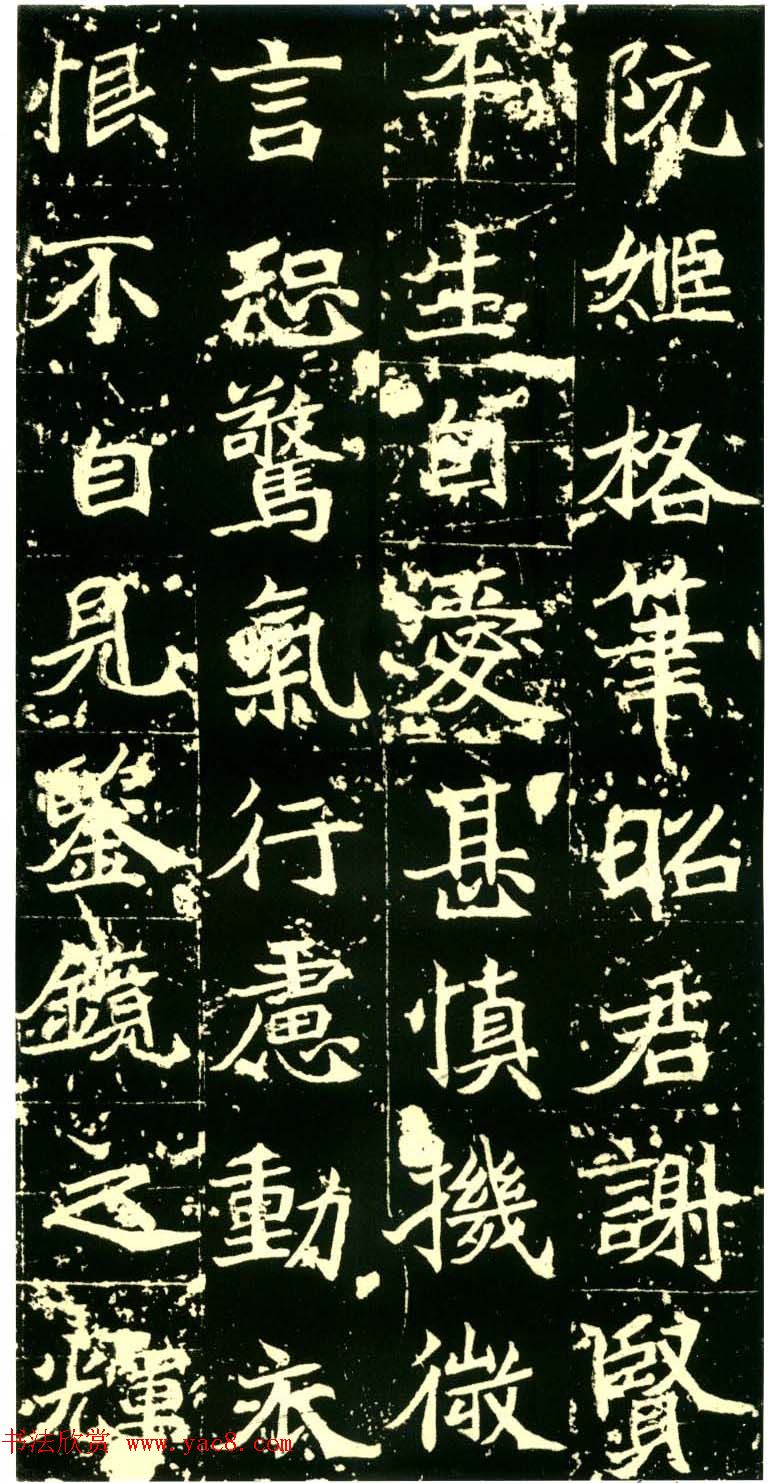 阮姬格筆昭君謝賢
平生自愛甚慎機微
言恐驚氣行慮動衣
恨不自見鑒鏡之輝
书法欣赏 www.yac8.com